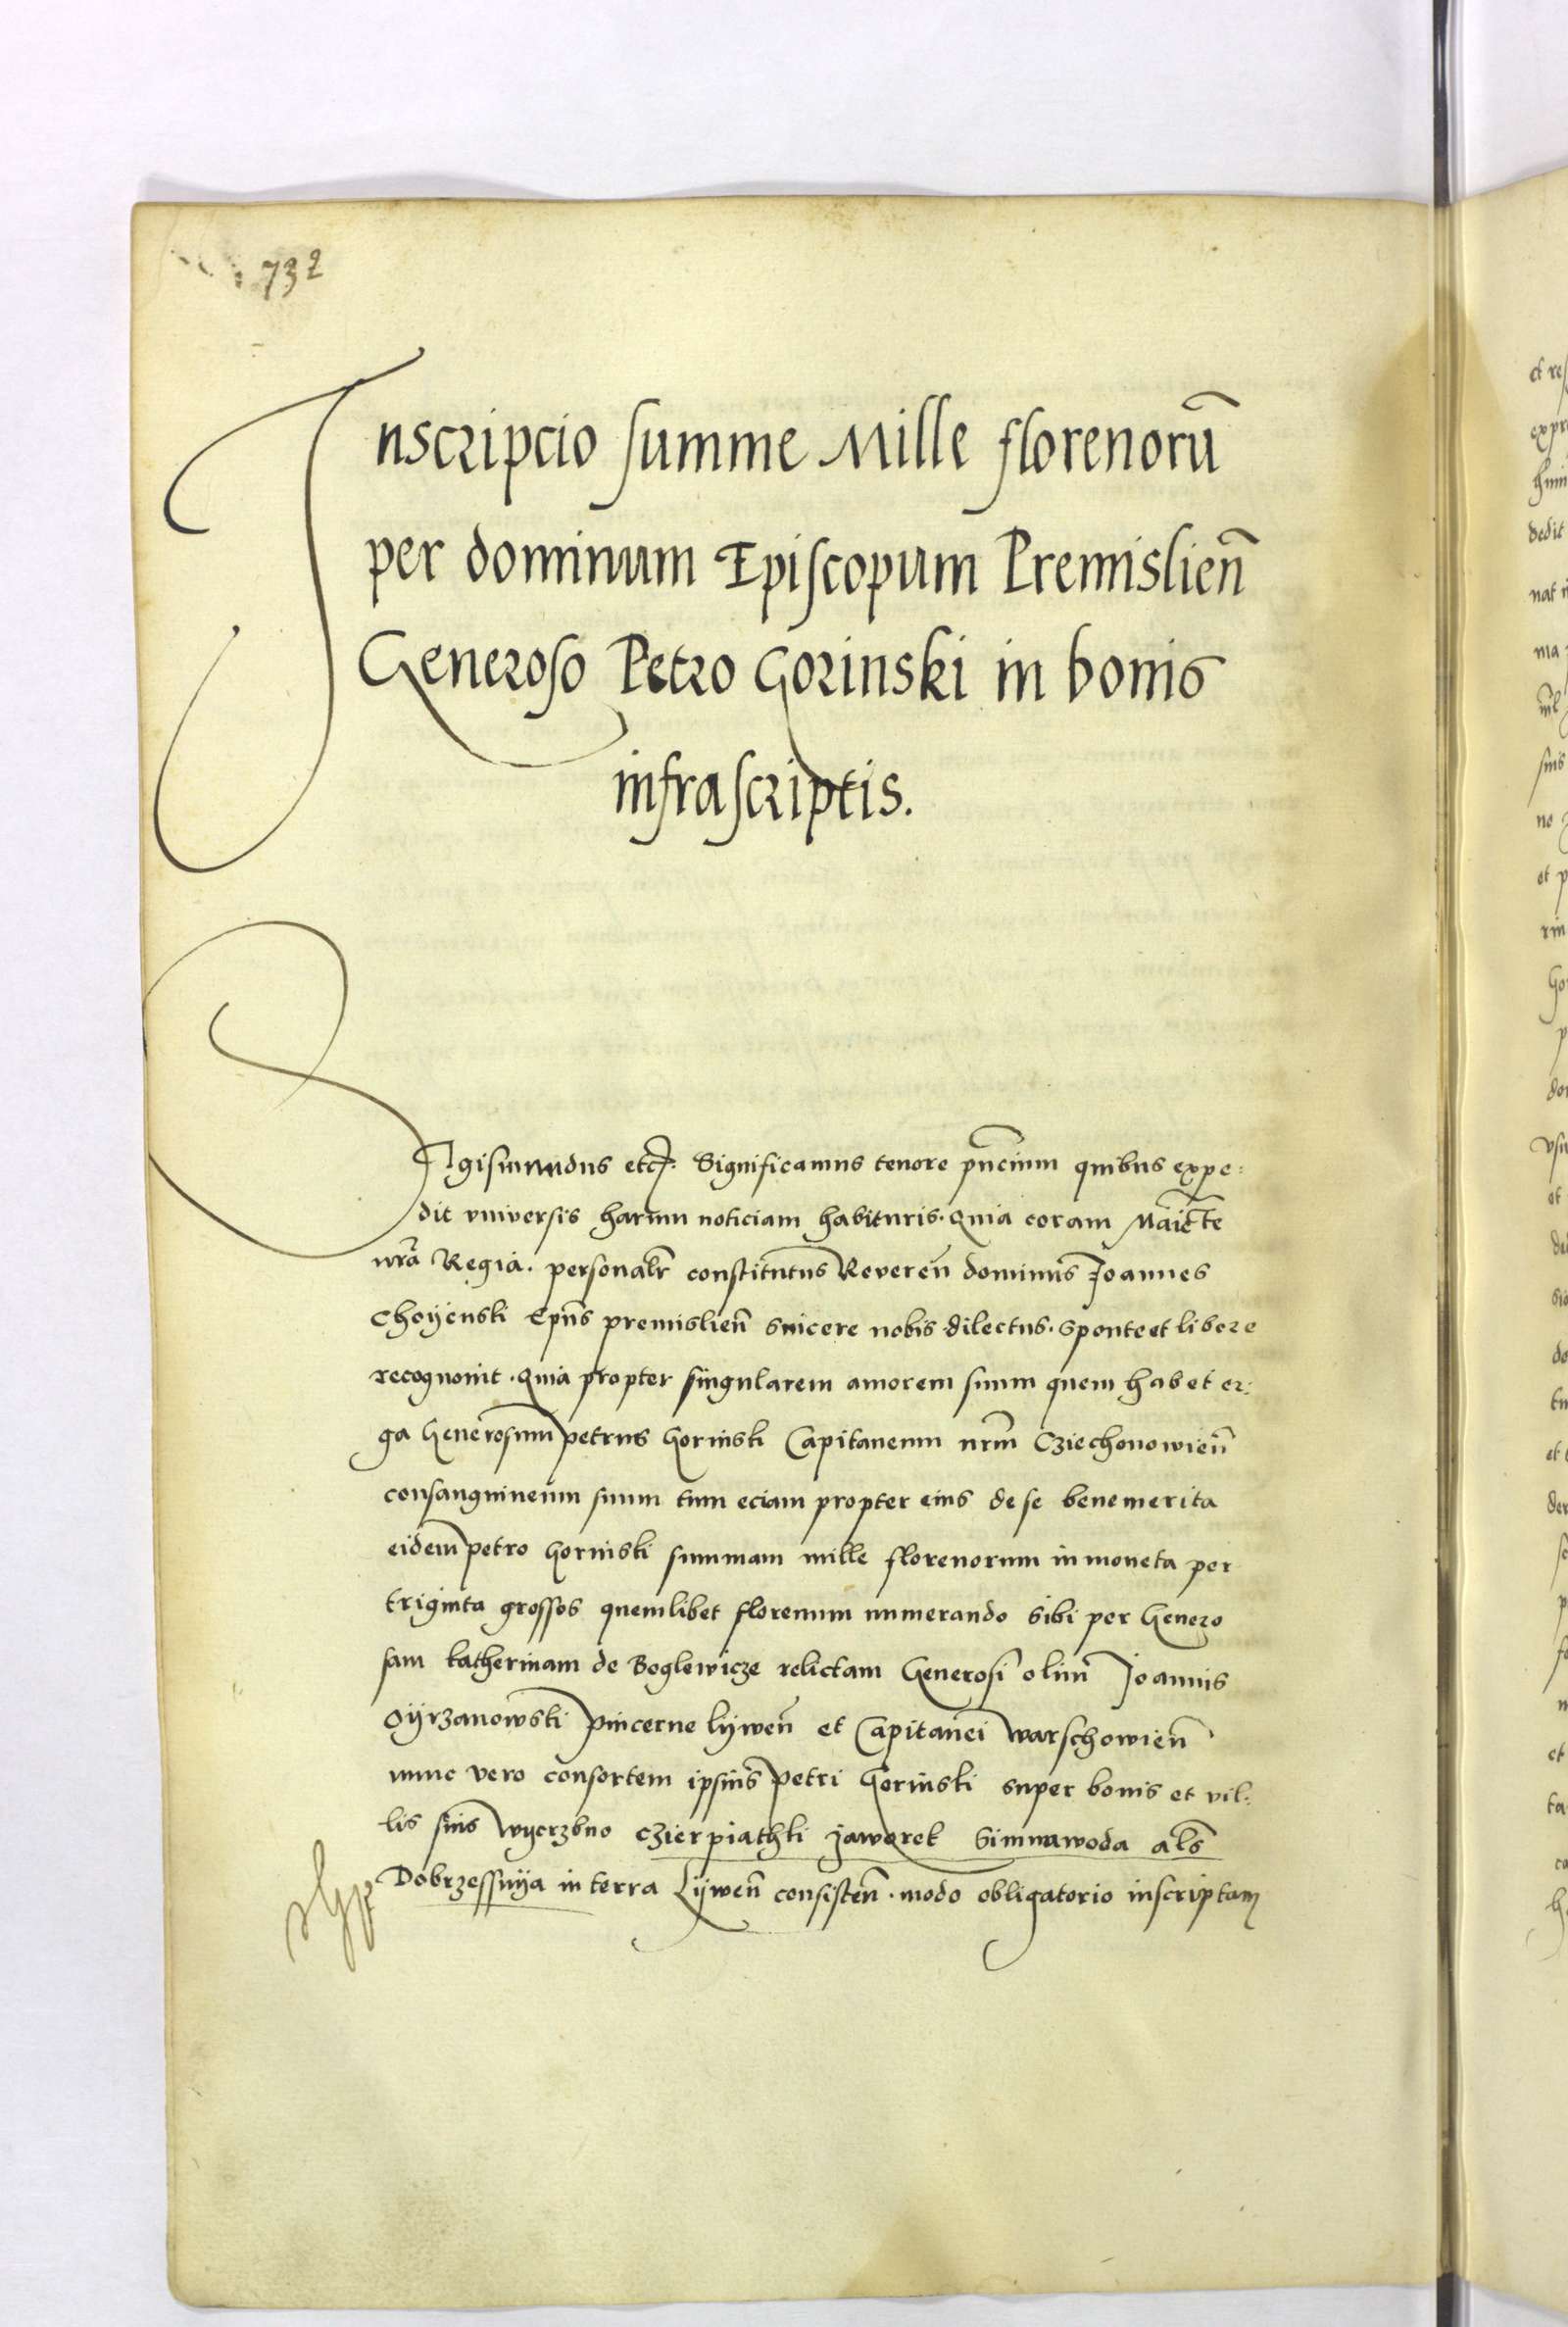 732
Inscripcio summe Mille florenorū
per dominum Episcopum Premislien̄
Generoso Petro Gorinski in bonis
infrascriptis.
Sigismundus etc. Significamus tenore pn̄cium quibus expe:
dit vniversis harum noticiam habituris. Quia coram Maiēte
nr̄a Regia. personalr̄ constitutus Reveren̄ dominus Joannes
Choyenski Epūs premislien̄ sincere nobis dilectus. Sponte et libere
recognovit. Quia propter singularem amorem suum quem habet er:
ga Generosum petrus Gorinski Capitaneum nr̄m Cziechonowien̄
consanguineum suum tum eciam propter eius de se benemerita
eidem petro Gorinski summam mille florenorum in moneta per
triginta grossos quemlibet florenum numerando sibi per Genero
sam katherinam de Boglewicze relictam Generosi olim Joannis
Oyrzanowski pincerne lywen̄ et Capitanei warschowien̄
nunc vero consortem ipsius petri Gorinski super bonis et vil:
lis suis wyerzbno czierpiathki jaworek Simnawoda als̄
Dobrzessnya in terra Lywen̄ consisten̄. modo obligatorio inscriptam